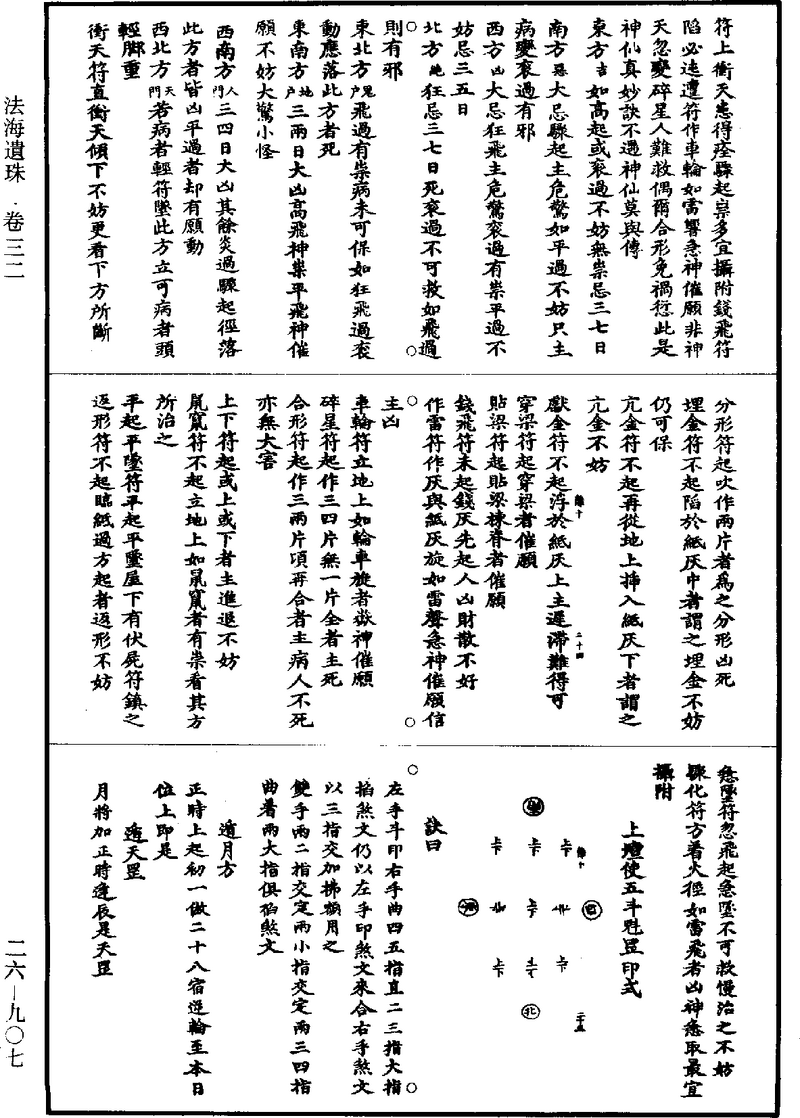 法海遺珠·卷三二
二六—九〇七
符上衝天患得痊驟起祟多宜攝附錢飛符
陷必速遭符作車輪如雷響急神催願非神
天忽變碎星人難救偶爾合形免禍愆此是
神仙真妙訣不遇神仙莫與傳
東方吉如高起或衮過不妨無祟忌三七日
南方忌大忌驟起主危驚如平過不妨只主
病變衮過有邪
西方凶大忌狂飛主危驚衮過有祟平過不
妨忌三五日
北方絶狂忌三七日死衮過不可救如飛過
則有邪
東北方鬼戶飛過有祟病未可保如狂飛過衮
動應落此方者死
東南方地戶三兩日大凶高飛神祟平飛神催
願不妨大驚小怪
西南方人門三四日大凶其餘炎過驟起徑落
此方者皆凶平過者却有願動
西北方天門若病者輕符墜此方立可病者頭
輕脚重
衝天符直衝天傾下不妨更看下方所斷
分形符起吹作兩片者為之分形凶死
埋金符不起陷於紙灰中者謂之埋金不妨
仍可保
亢金符不起再從地上插入紙灰下者謂之
亢金不妨
獻金符不起浮於紙灰上主遲滯難得可
穿梁符起穿梁者催願
貼梁符起貼梁棟脊者催願
錢飛符未起錢灰先起人凶財散不好
作雷符作灰與紙灰旋如雷聲急神催願信
主凶
車輪符立地上如輪車旋者嶽神催願
碎星符起作三四片無一片全者主死
合形符起作三兩片頃再合者主病人不死
亦無大害
上下符起或上或下者主進退不妨
鼠竄符不起立地上如鼠竄者有祟看其方
所治之
平起平墜符平起平墜屋下有伏屍符鎮之
返形符不起臨紙過方起者返形不妨
急墜符忽飛起急墜不可救慢治之不妨
驟化符方着火徑如雷飛者凶神急取最宜
攝附
上壇使五斗尅罡印式
北
二十四
二十五
訣曰
左手斗印右手曲四五指直二三指大指
掐煞文仍以左手印煞文來合右手煞文
以三指交加拂額用之
雙手兩二指交定兩小指交定兩三四指
曲着兩大指俱掐煞文
遁月方
正時上起初一倣二十八宿逆輪至本日
位上即是
遁天罡
月將加正時逢辰是天罡